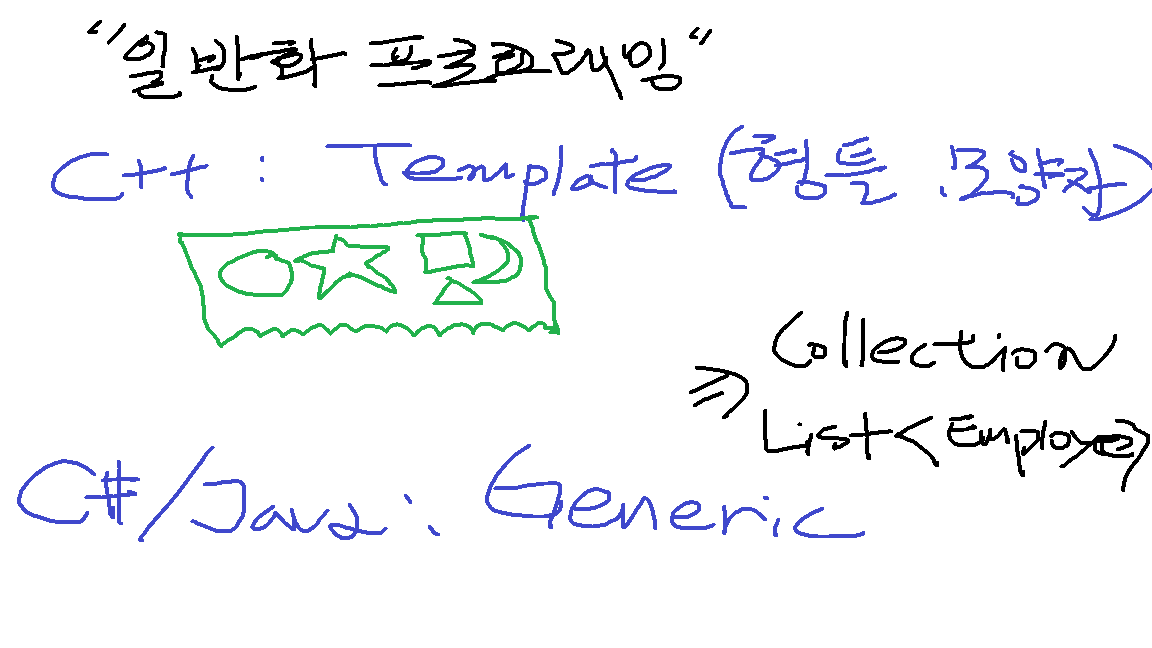 "일반화 프로그래밍"
C++ : Template (형틀. 모양자)
⇒ Collection
List<Employee>
C#/Java : Generic